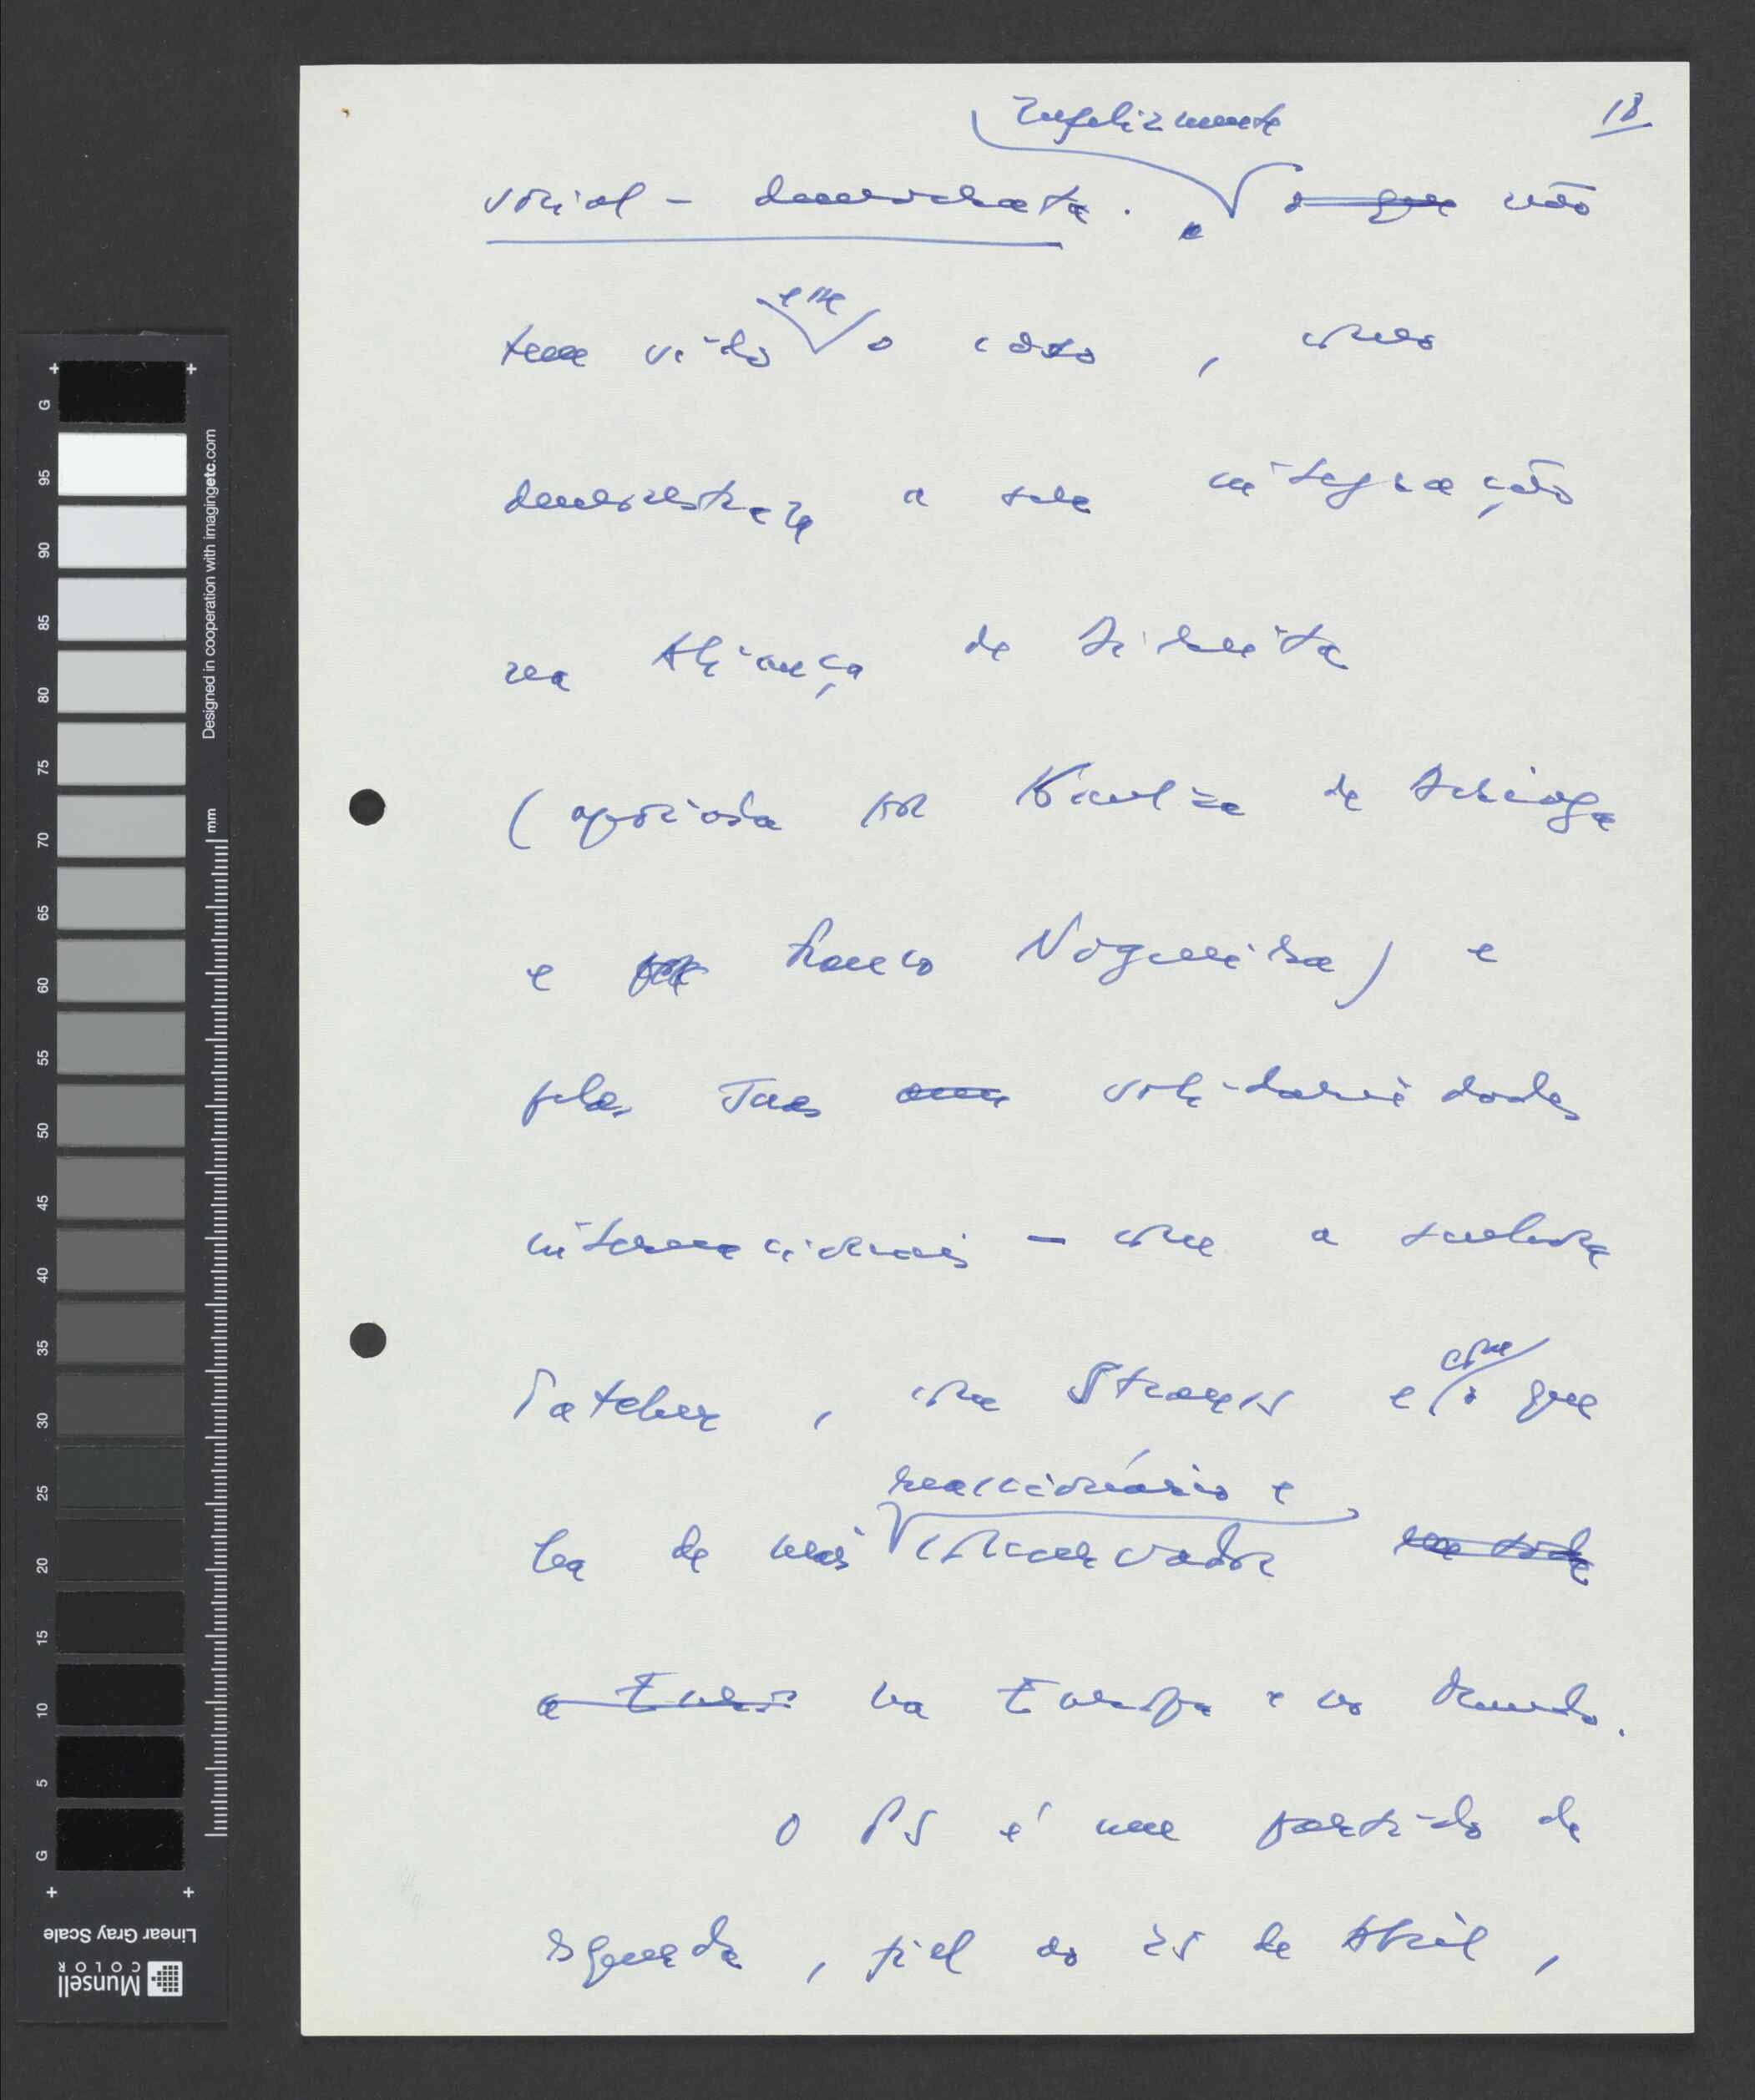 18
Infelizmente
social-democrata. o que não
tem sido esse o caso, como
demonstra a sua integração
na Aliança de direita
(apoiada por Kaulza de Arriaga
e por Franco Nogueira) e
pelas suas solidariedades
internacionais - com a senhora
Tatcher, com Strauss e com o que
reaccionário e
ha de mais conservador
a Euro na Europa e no Mundo.
O PS é um partido de
esquerda, fiel ao 25 de Abril,
G
95
90
85
80
75
70
65
60
55
50
45
40
35
30
25
20
15
10
5
G
Designed in cooperation with imagingetc.com
mm
Linear Gray Scale
Munsell
COLOR